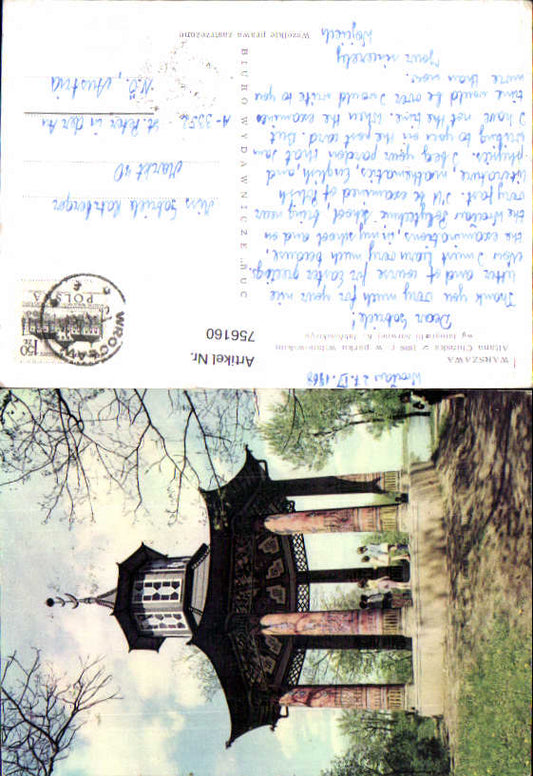 Wrocław 27.IV.1968
WARSZAWA
Altana Chińska z 1806 r. w parku wilanowskim
Dear Gabriele!
Thank you very much for your nice
letter and of course for Easter greetings.
Now I must learn very much because,
the examinations, in my school and on
the Wrocław Polytechnic school, bring near
very fast. I'll be examined of Polish
literature, mathematics, English, and,
physics. I beg your pardon that I am
writing to you on the post card. But
I have not the time. When the examines
time would be over I would write to you
more than now.
Your sincerely
Wojciech
BIURO WYDAWNICZE „RUCH”
Wszelkie prawa zastrzeżone
WROCŁAW
POLSKA
1,50 ZŁ
Miss Gabriele
Markt 40
A-3352 St. Peter in der Au
N.Ö., Austria
Artikel Nr.
756160